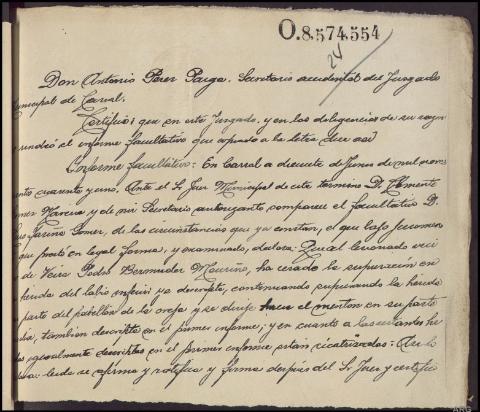 O.8,574,554
24
Don Antonio Pérez Paiga. Secretario accidental del Juzgado
unicipal de Carral.
Certifico: que en este Juzgado, y en las delegencias de su razon
rendió el informe facultativo que copiado a la letra dice así
Informe facultativo: En Carral a diecisiete de Junio de mil novec
ento cuarenta y uno. Ante el Sr Juez Municipal de este termino D. Clemente
y de mi Secretario autorizante comparece el facultativo D.
Fariña de las circunstancias que ya constan, el que bajo juramen
que prestó en legal forma, y examinado, declara: Que el lesionado veci
de Veira Pedro Bermudez Mourino, ha cesado la supuración en
herida del labio inferior ya descripta, continuando supurando la herida
parte del pabellón de la oreja y se dirije hacia el menton en su parte
tambien descripta en el primer informe; y en cuanto a las restantes he
igualmente descriptas en el primer informe están cicatrizadas: Asi lo
leida se afirma y ratifica y firma después del Sr Juez y certifico
ARG